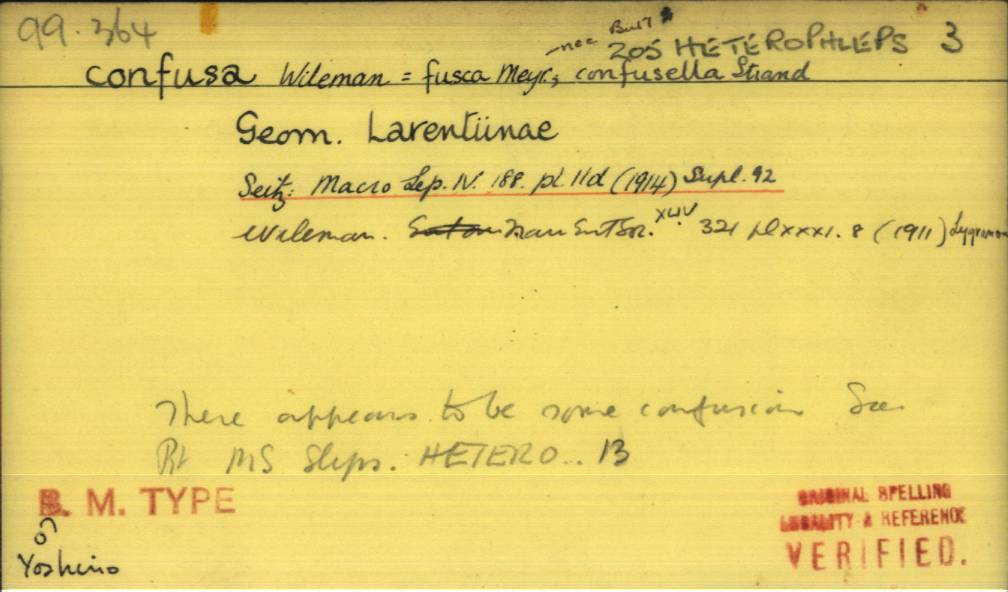 99.364
205 HETEROPHLEPS 3
confusa Wileman = fusca Meyr, nec Butl, confusella Strand
Geom. Larentiinae
Seitz: Macro Lep. IV. 188. pl. 11d (1914) Supl. 92
Wileman. Tran Ent Soc. XLIV 321 pl xxxi. 8 (1911)
There appears to be some confusion See
MS Slips. HETERO.. 13
B. M. TYPE
♂
Yoshino
ORIGINAL SPELLING
LOCALITY & REFERENCE
VERIFIED.